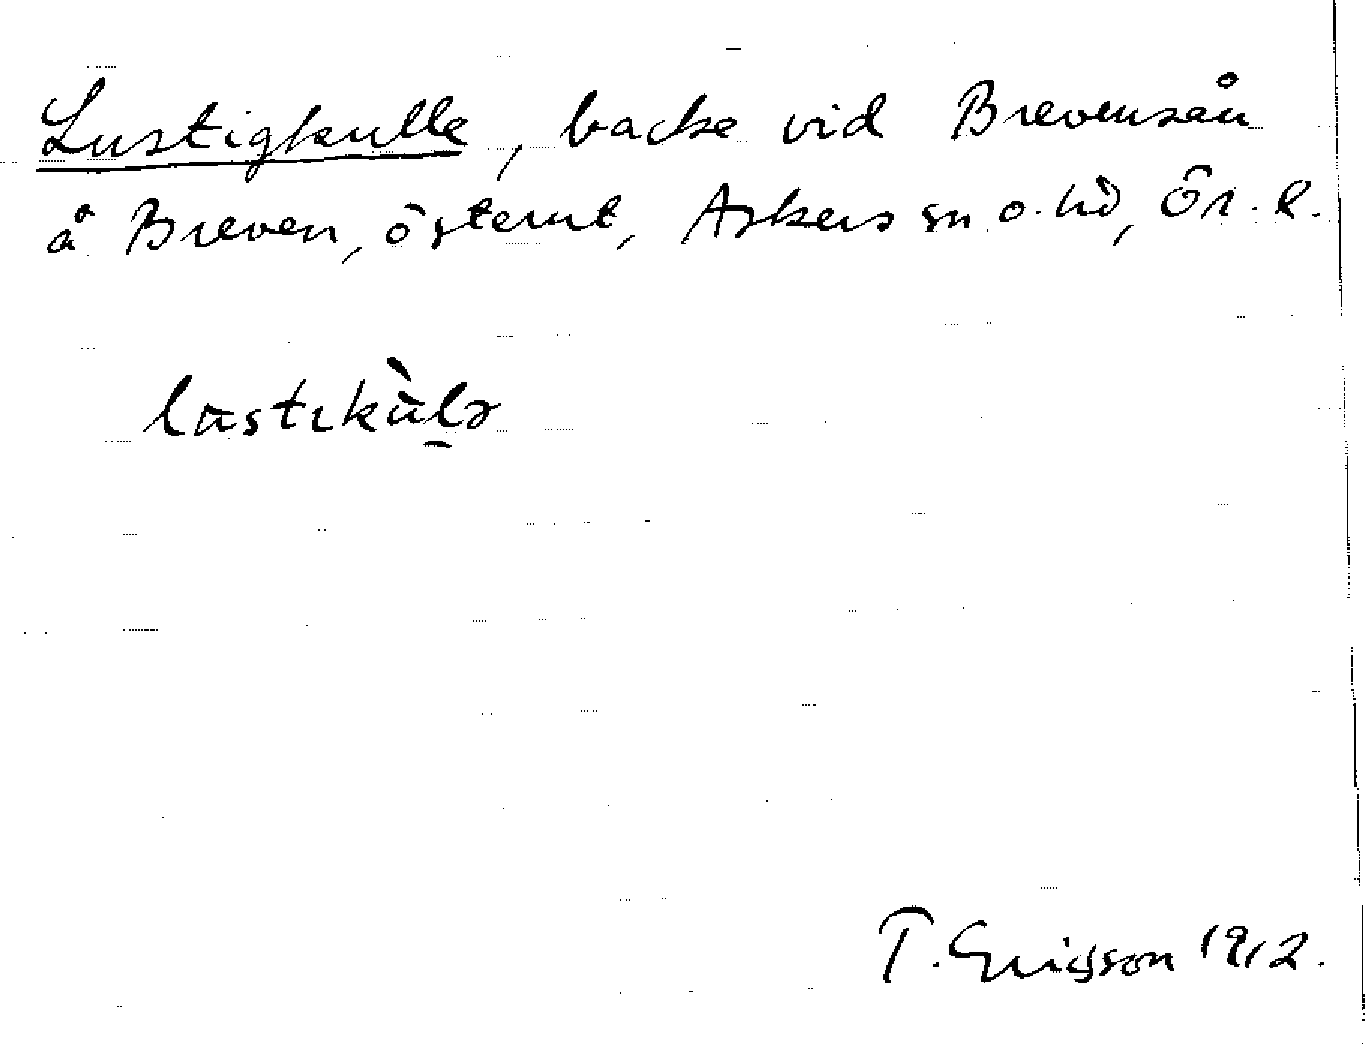 Lustigkulle, backe vid Brevensån
å Breven, österut, Askers sn o. hd, Ör. l.
T. Ericsson 1912.